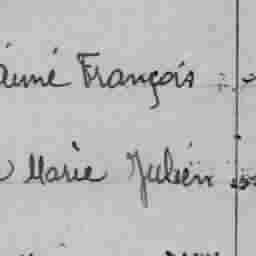 Aimé François
Marie Julien